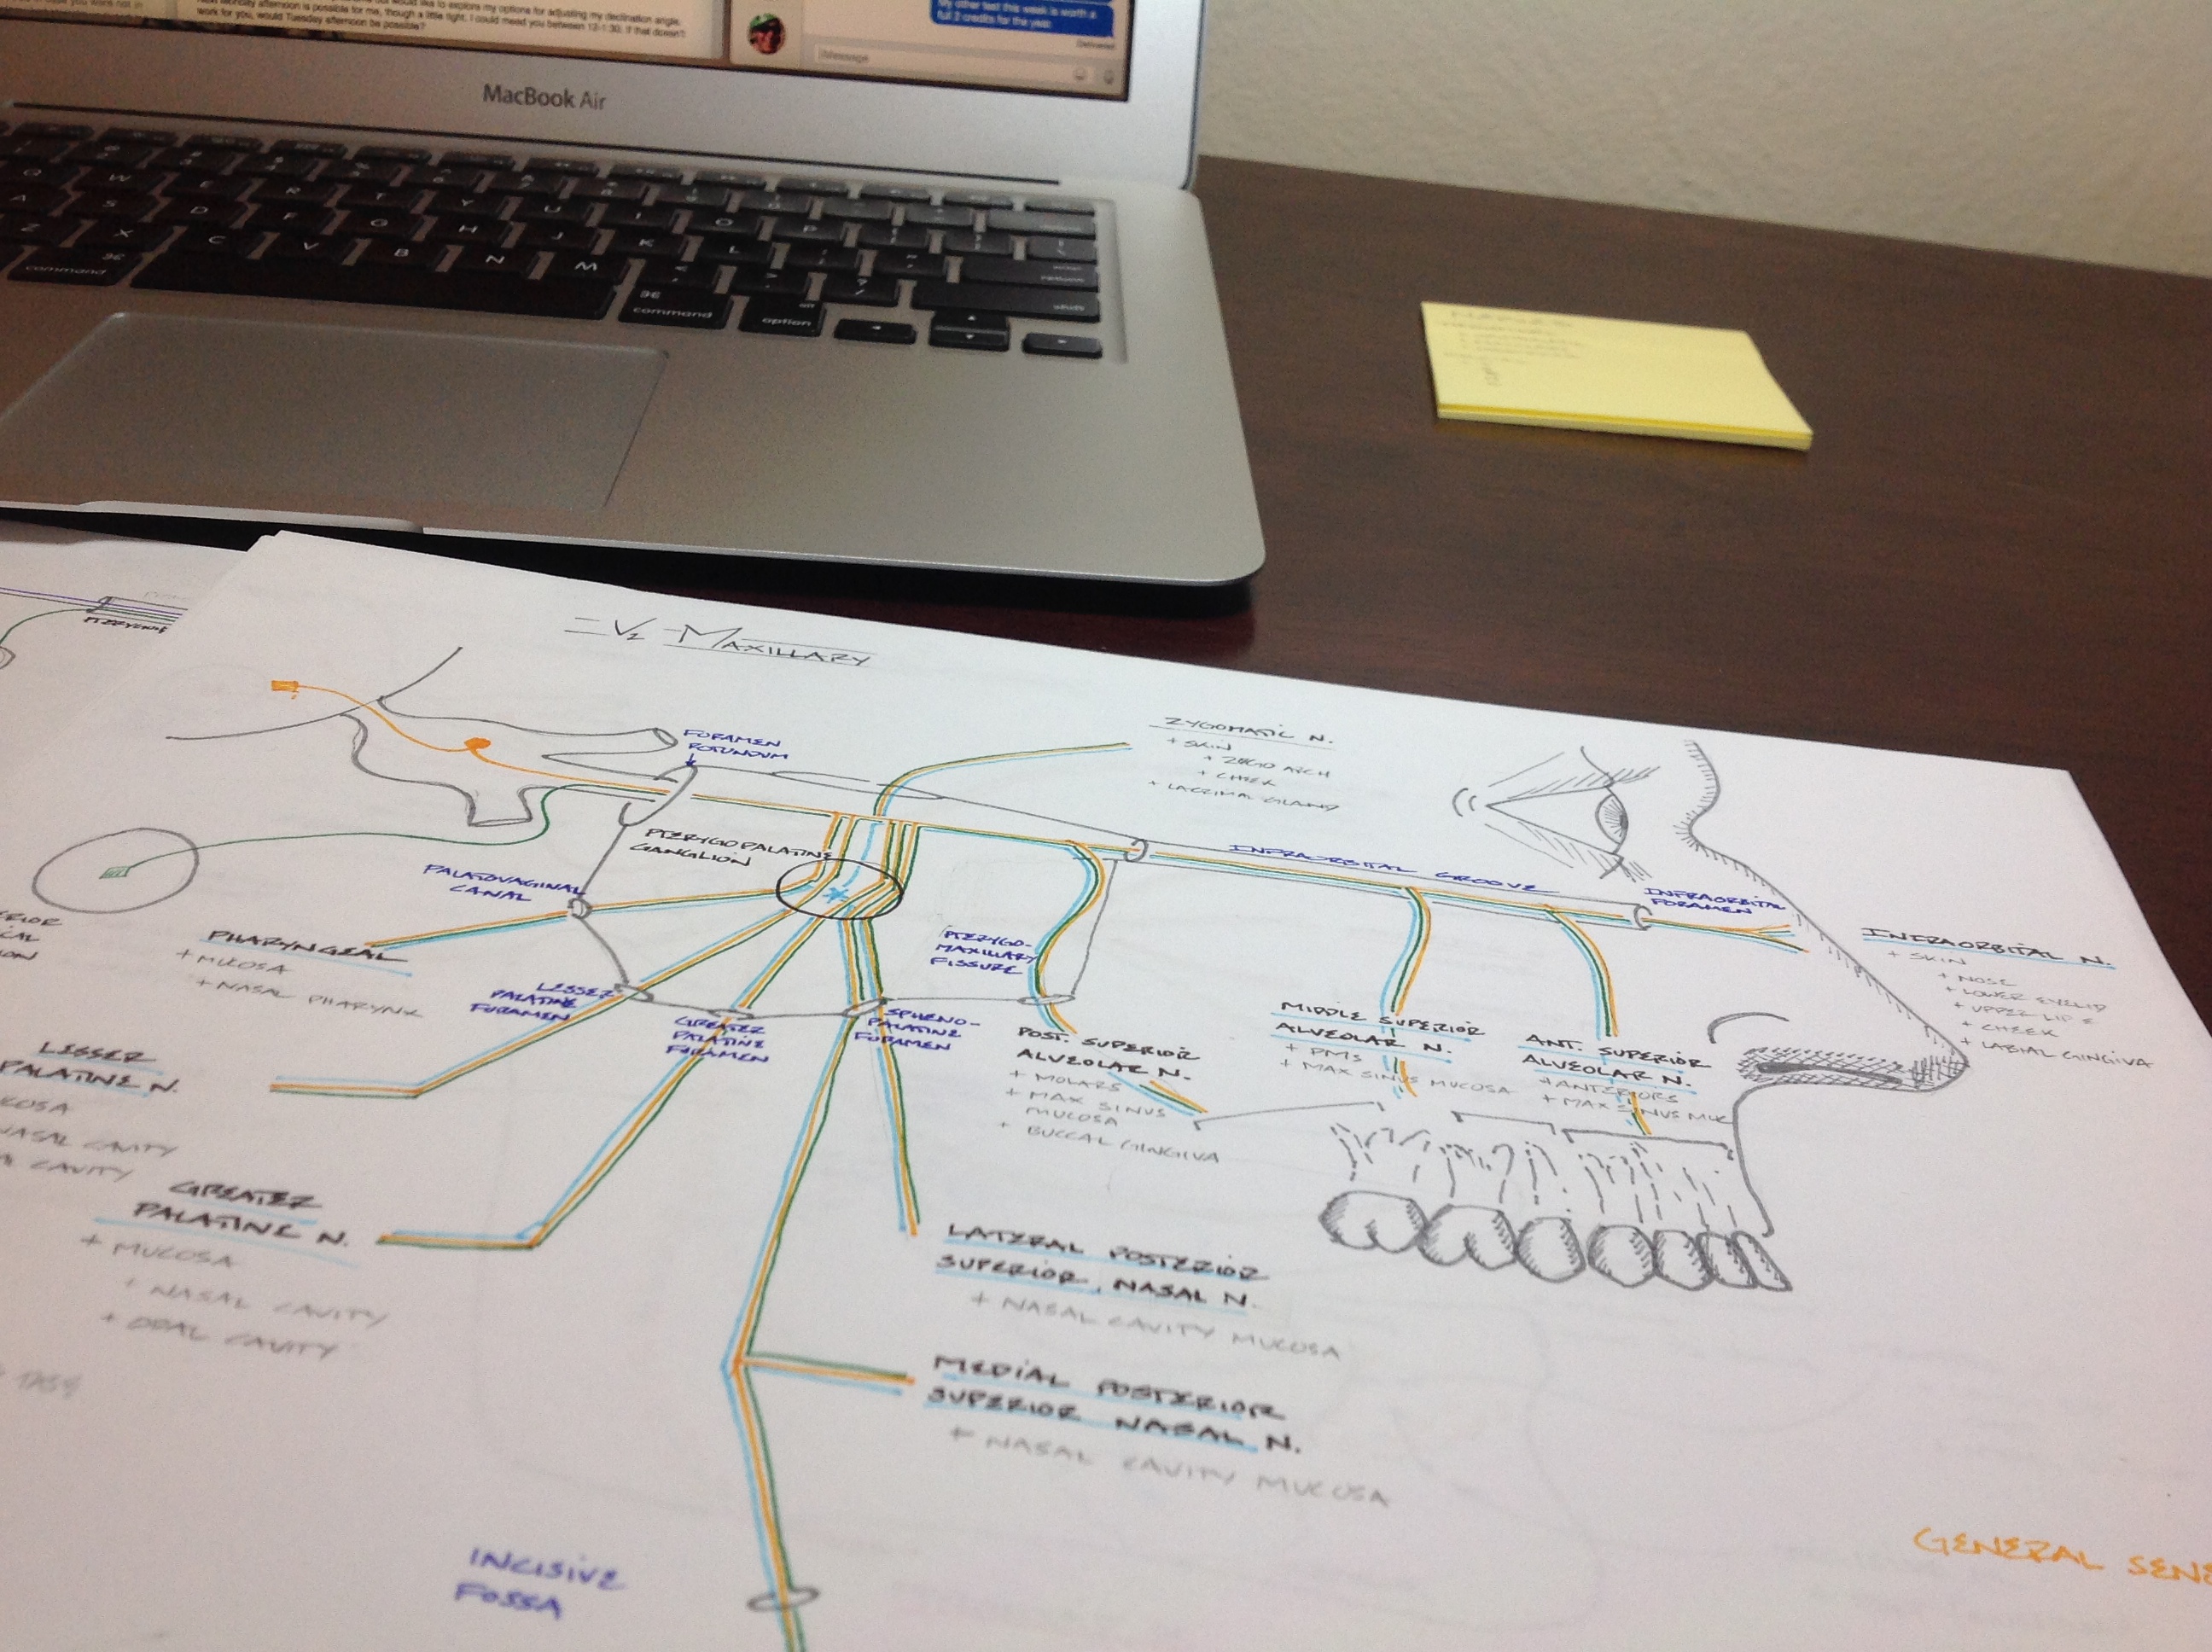 Monday afternoon is possible for me, though a little tight. I could meed you between 12-1:30. If that doesn't
work for you, would Tuesday afternoon be possible?
My other test this week is worth a
full 2 credits for the year
Delivered
iMessage
MacBook Air
Q W E R T Y U I O P
A S D F G H J K L
Z X C V B N M
command
command
option
return
shift
V2 MAXILLARY
FORAMEN
ROTUNDUM
ZYGOMATIC N.
+ SKIN
+ ZYGO ARCH
+ CHEEK
+ LACRIMAL GLAND
PTERYGOPALATINE
GANGLION
PALATOVAGINAL
CANAL
INFRAORBITAL GROOVE
INFRAORBITAL
FORAMEN
PHARYNGEAL
+ MUCOSA
+ NASAL PHARYNX
PTERYGO-
MAXILLARY
FISSURE
INFRAORBITAL N.
+ SKIN
+ NOSE
+ LOWER EYELID
+ UPPER LIP &
+ CHEEK
+ LABIAL GINGIVA
LESSER
PALATINE
FORAMEN
GREATER
PALATINE
FORAMEN
SPHENO-
PALATINE
FORAMEN
POST. SUPERIOR
ALVEOLAR N.
+ MOLARS
+ MAX SINUS
MUCOSA
+ BUCCAL GINGIVA
MIDDLE SUPERIOR
ALVEOLAR N.
+ PMS
+ MAX SINUS MUCOSA
ANT. SUPERIOR
ALVEOLAR N.
+ ANTERIORS
+ MAX SINUS MUC
LESSER
PALATINE N.
COSA
NASAL CAVITY
CAVITY
GREATER
PALATINE N.
+ MUCOSA
+ NASAL CAVITY
+ ORAL CAVITY
LATERAL POSTERIOR
SUPERIOR NASAL N.
+ NASAL CAVITY MUCOSA
MEDIAL POSTERIOR
SUPERIOR NASAL N.
+ NASAL CAVITY MUCOSA
INCISIVE
FOSSA
GENERAL SENS